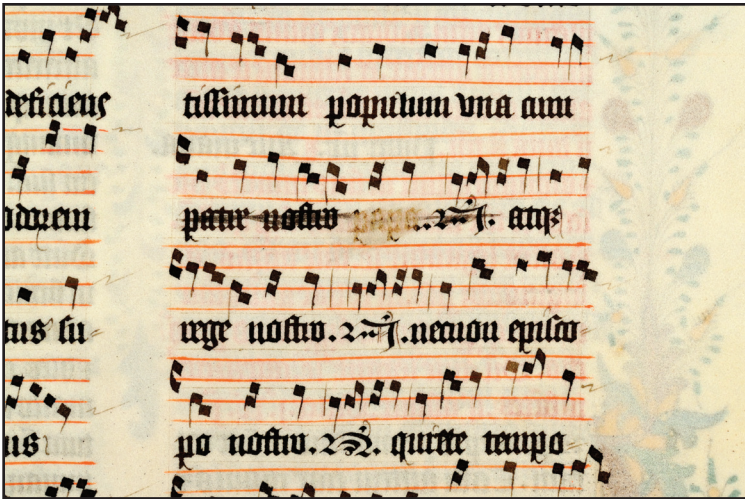 deficiens
odorem
tus su-
us
tissimum populum vna cum
patre nostro papa atqꝫ
rege nostro. necnon episco-
po nostro. quiete tempo-